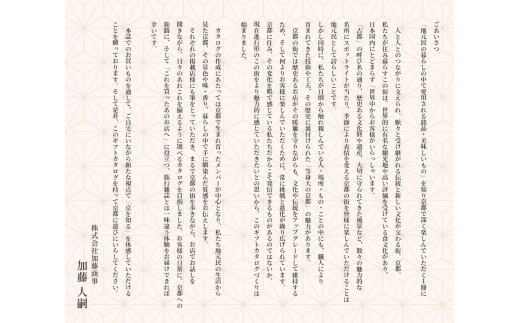 ごあいさつ
「地元民の暮らしの中で愛用される逸品・美味しいもの」を知り京都で深く楽しんでいただく一冊に
人と人とのつながりに支えられ、脈々と受け継がれる伝統と新しい文化が交わる街、京都。
私たちが住み暮らすこの街は、世界的に有名な観光地や高い評価を受けている食文化があり、
日本国内にとどまらず、世界中からお客様がいらっしゃいます。
「古都」の呼び名の通り、歴史ある文化財や遺産、大切に守られてきた風景など、数々の魅力的な
名所にスポットライトが当たり、季節により表情を変える京都の街を皆様に楽しんでいただけることは
地元民として誇らしいことです。
しかし同時に、私たちが日頃から触れ親しんでいる人・場所・もの・ことの中にも、職人により
育まれてきた技術や工夫、その歴史に裏付けられた、等身大の京都の魅力があります。
京都の街では歴史あるお店がその暖簾を守りながらも、文化や伝統をアップデートして維持する
ため、そして何よりお客様に楽しんでいただくために、常に挑戦と進化が繰り広げられています。
京都に住み、その変化を肌で感じている私たちだからこそ発信できるものがあるのではないか、
現在進行形のこの街をより魅力的に感じていただきたいとの思いから、このギフトカタログづくりは
始まりました。
カタログの作成にあたっては京都で生まれ育ったメンバーが中心となり、私たち地元民の生活から
見た京都、その景色や味・香り、暮らしの中で手に馴染んだ質感をお伝えします。
それぞれの掲載店様にも筆をとっていただき、まるで京都の街を歩きながら、お店でお話しを
聞きながら、日々のあれこれを揃えるように選べるカタログを目指しました。お客様の日常に、京都への
旅路に、そして「これを買ったあのお店へ」に役立つ、旅行雑誌とは一味違う体験をお届けできれば
幸いです。
本誌でのお買いものを通して、ご自宅にいながら新たな視点で「京を知る」を体感していただける
ことを願っております。そして是非、このギフトカタログを持って京都に遊びにいらしてください。
株式会社加藤商事
加藤 人嗣